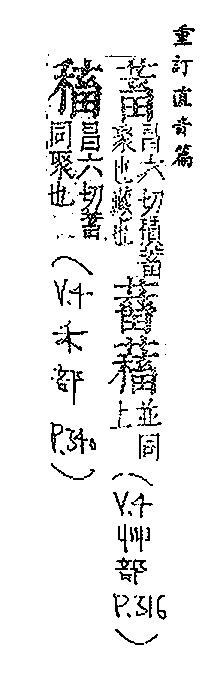 重訂直音篇
蓄昌六切積蓄
聚也藏也
並同
上
(V.4
艸部
P.316)
稸昌六切蓄
同聚也
(V.4
禾部
P.340)